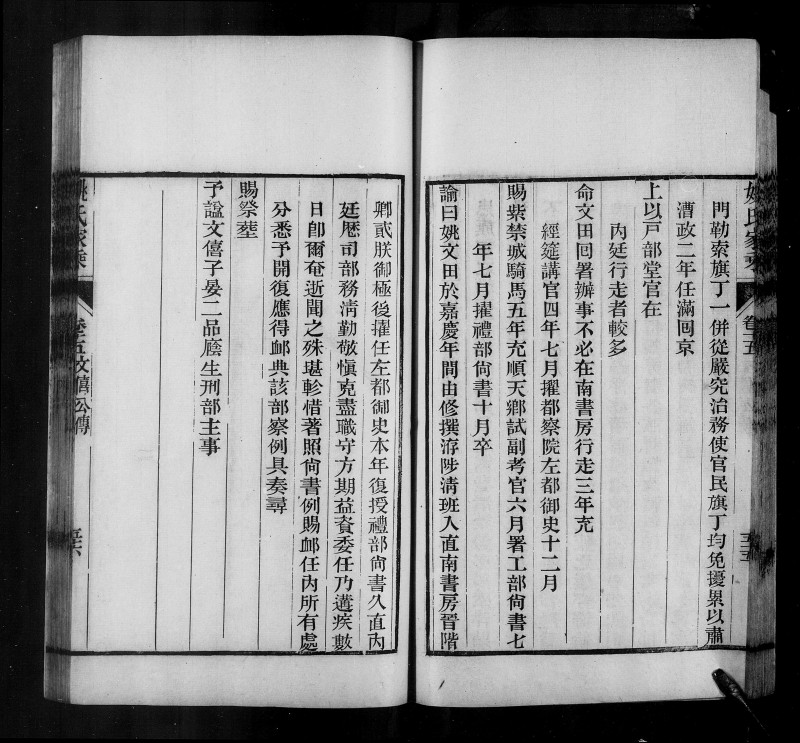 姚氏家乘
卷五
五五
門勒索旗丁一併從嚴究治務使官民旗丁均免擾累以肅
漕政二年任滿回京
上以戸部堂官在
內廷行走者較多
命文田回署辦事不必在南書房行走三年充
經筵講官四年七月擢都察院左都御史十二月
賜紫禁城騎馬五年充順天鄉試副考官六月署工部尙書七
年七月擢禮部尙書十月卒
諭曰姚文田於嘉慶年間由修撰洊陟淸班入直南書房晉階
卿貳朕御極後擢任左都御史本年復授禮部尙書久直內
廷歷司部務淸勤敬愼克盡職守方期益資委任乃遘疾數
日卽爾奄逝聞之殊堪軫惜著照尙書例賜卹任內所有處
分悉予開復應得卹典該部察例具奏尋
賜祭塟
予諡文僖子晏二品廕生刑部主事
姚氏家乘
卷五文僖公傳
五六